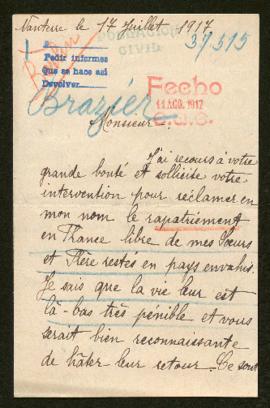 Nanterre le 17 Juillet 1917
POBLACION
CIVIL
37515
Pedir informes
Que se hace así
Devolver
Fecho
11 AGO. 1917
Brazier
Monsieur
J'ai recours à votre
grande bonté et sollicite votre
intervention pour réclamer en
mon nom le rapatriement
en France libre de mes Sœurs
et Frère restés en pays envahis.
Je sais que la vie leur est
là-bas très pénible et vous
serait bien reconnaissante
de hâter leur retour. Ce sont